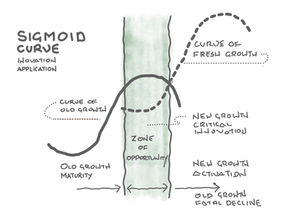 SIGMOID
CURVE
INOVATION
APPLICATION
CURVE OF
FRESH GROWTH
CURVE OF
OLD GROWTH
NEW GROWTH
CRITICAL
INNOVATION
ZONE
OF
OPPORTUNITY
OLD GROWTH
MATURITY
NEW GROWTH
ACTIVATION
OLD GROWN
FATAL DECLINE